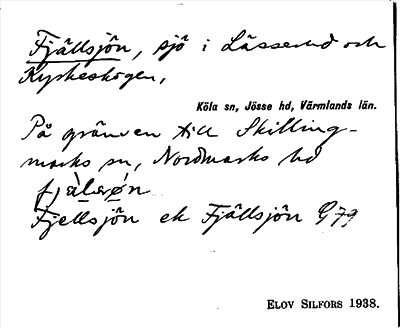 Fjällsjön, sjö i Lässerud och
Kyrkeskogen,
Köla sn, Jösse hd, Värmlands län.
På gränsen till Skilling-
marks sn, Nordmarks hd
Fjellsjön ek Fjällsjön G79
ELOV SILFORS 1938.